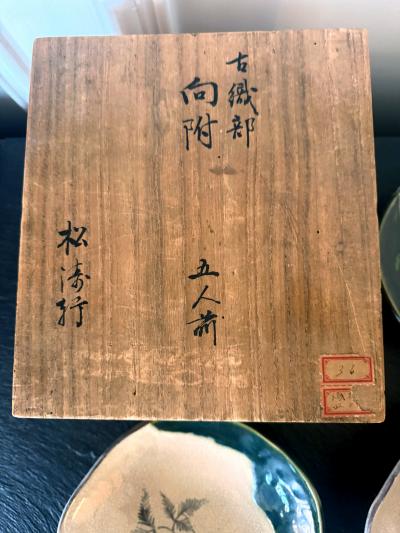 古織部
向附
五人前
松濤行
36